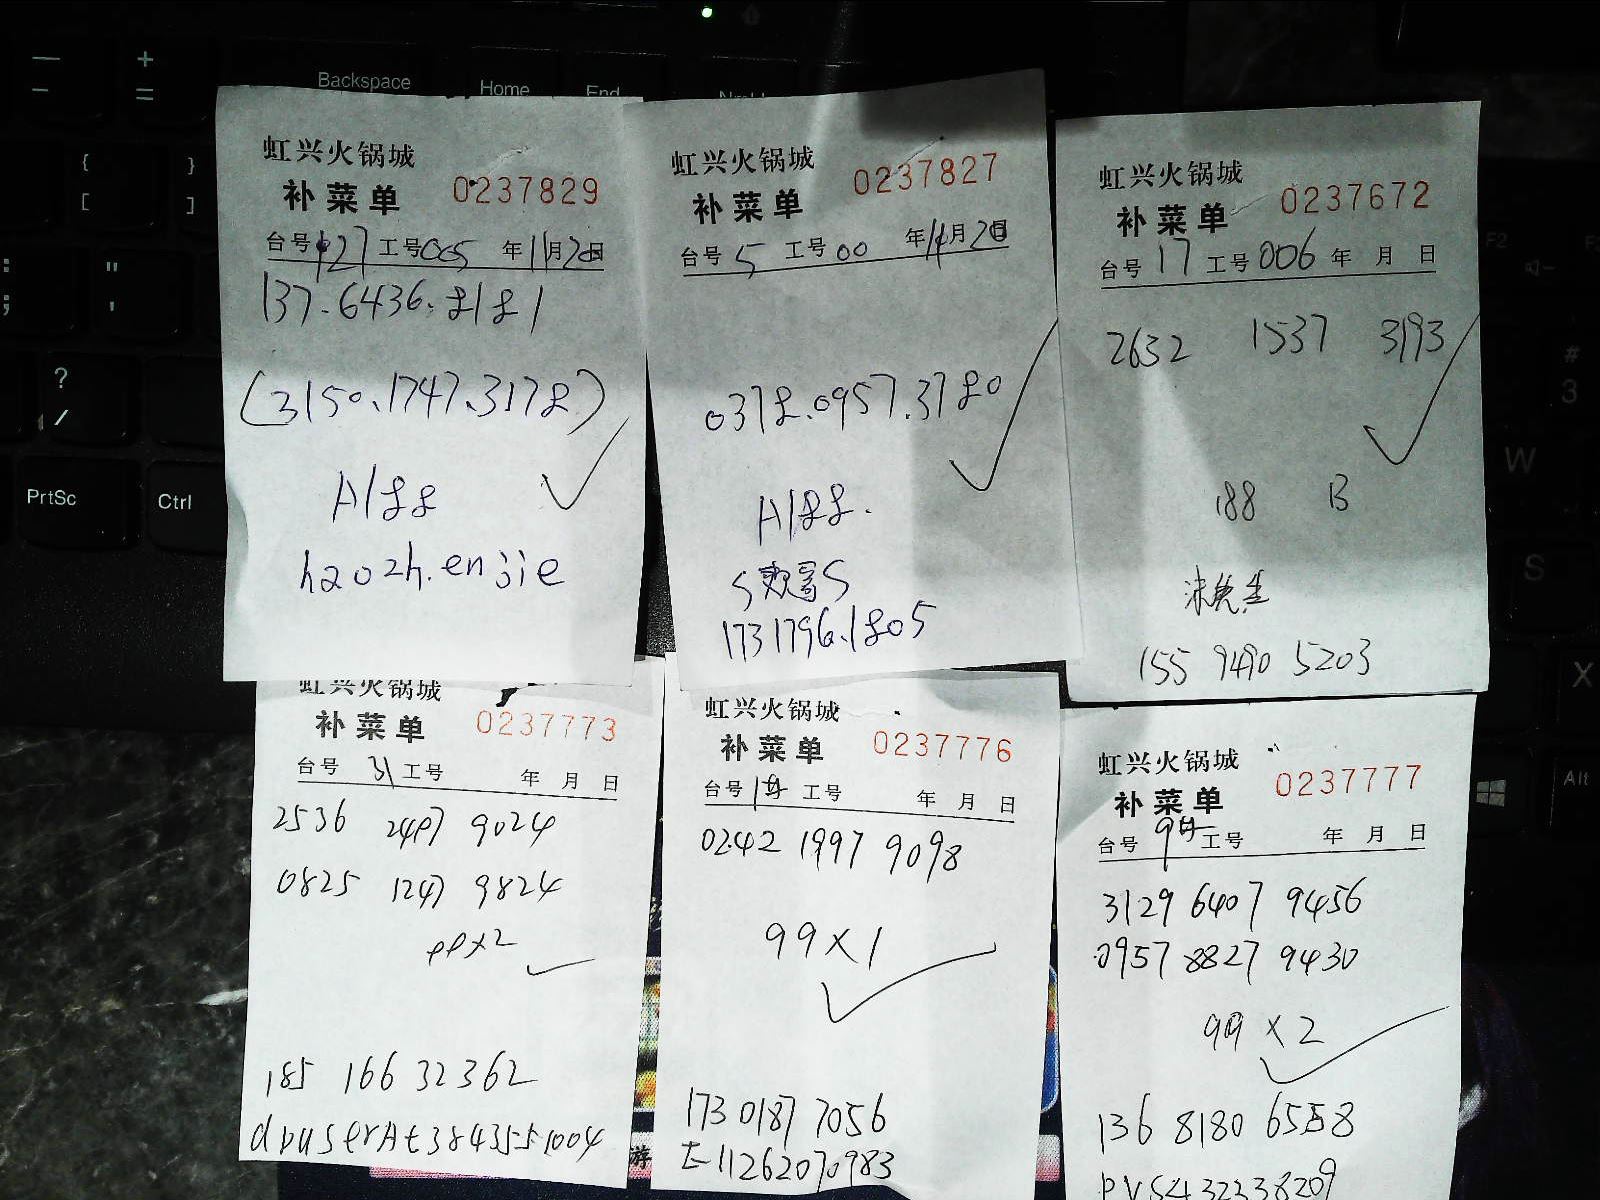 虹兴火锅城
补菜单 0237829
台号 127 工号 005 年 11月 20日
137.6436.8181
(3150.1747.3178)
A188
haozh.enjie
虹兴火锅城
补菜单 0237827
台号 5 工号 00 年 11月 20日
0378.0957.3780
A188.
1731796.1805
虹兴火锅城
补菜单 0237672
台号 17 工号 006 年 月 日
2632 1537 3193
188 B
先生
155 9490 5203
虹兴火锅城
补菜单 0237773
台号 31 工号 年 月 日
2536 2497 9024
0825 1247 9824
99×2
185 166 32362
dpuserAt3843551004
虹兴火锅城
补菜单 0237776
台号 工号 年 月 日
0242 1997 9098
99×1
173 0187 7056
E-11262070983
虹兴火锅城
补菜单 0237777
台号 工号 年 月 日
3129 6407 9456
0957 8827 9430
99×2
136 8180 6558
Backspace
Home
End
PrtSc
Ctrl
F2
#
3
W
S
X
Alt
游